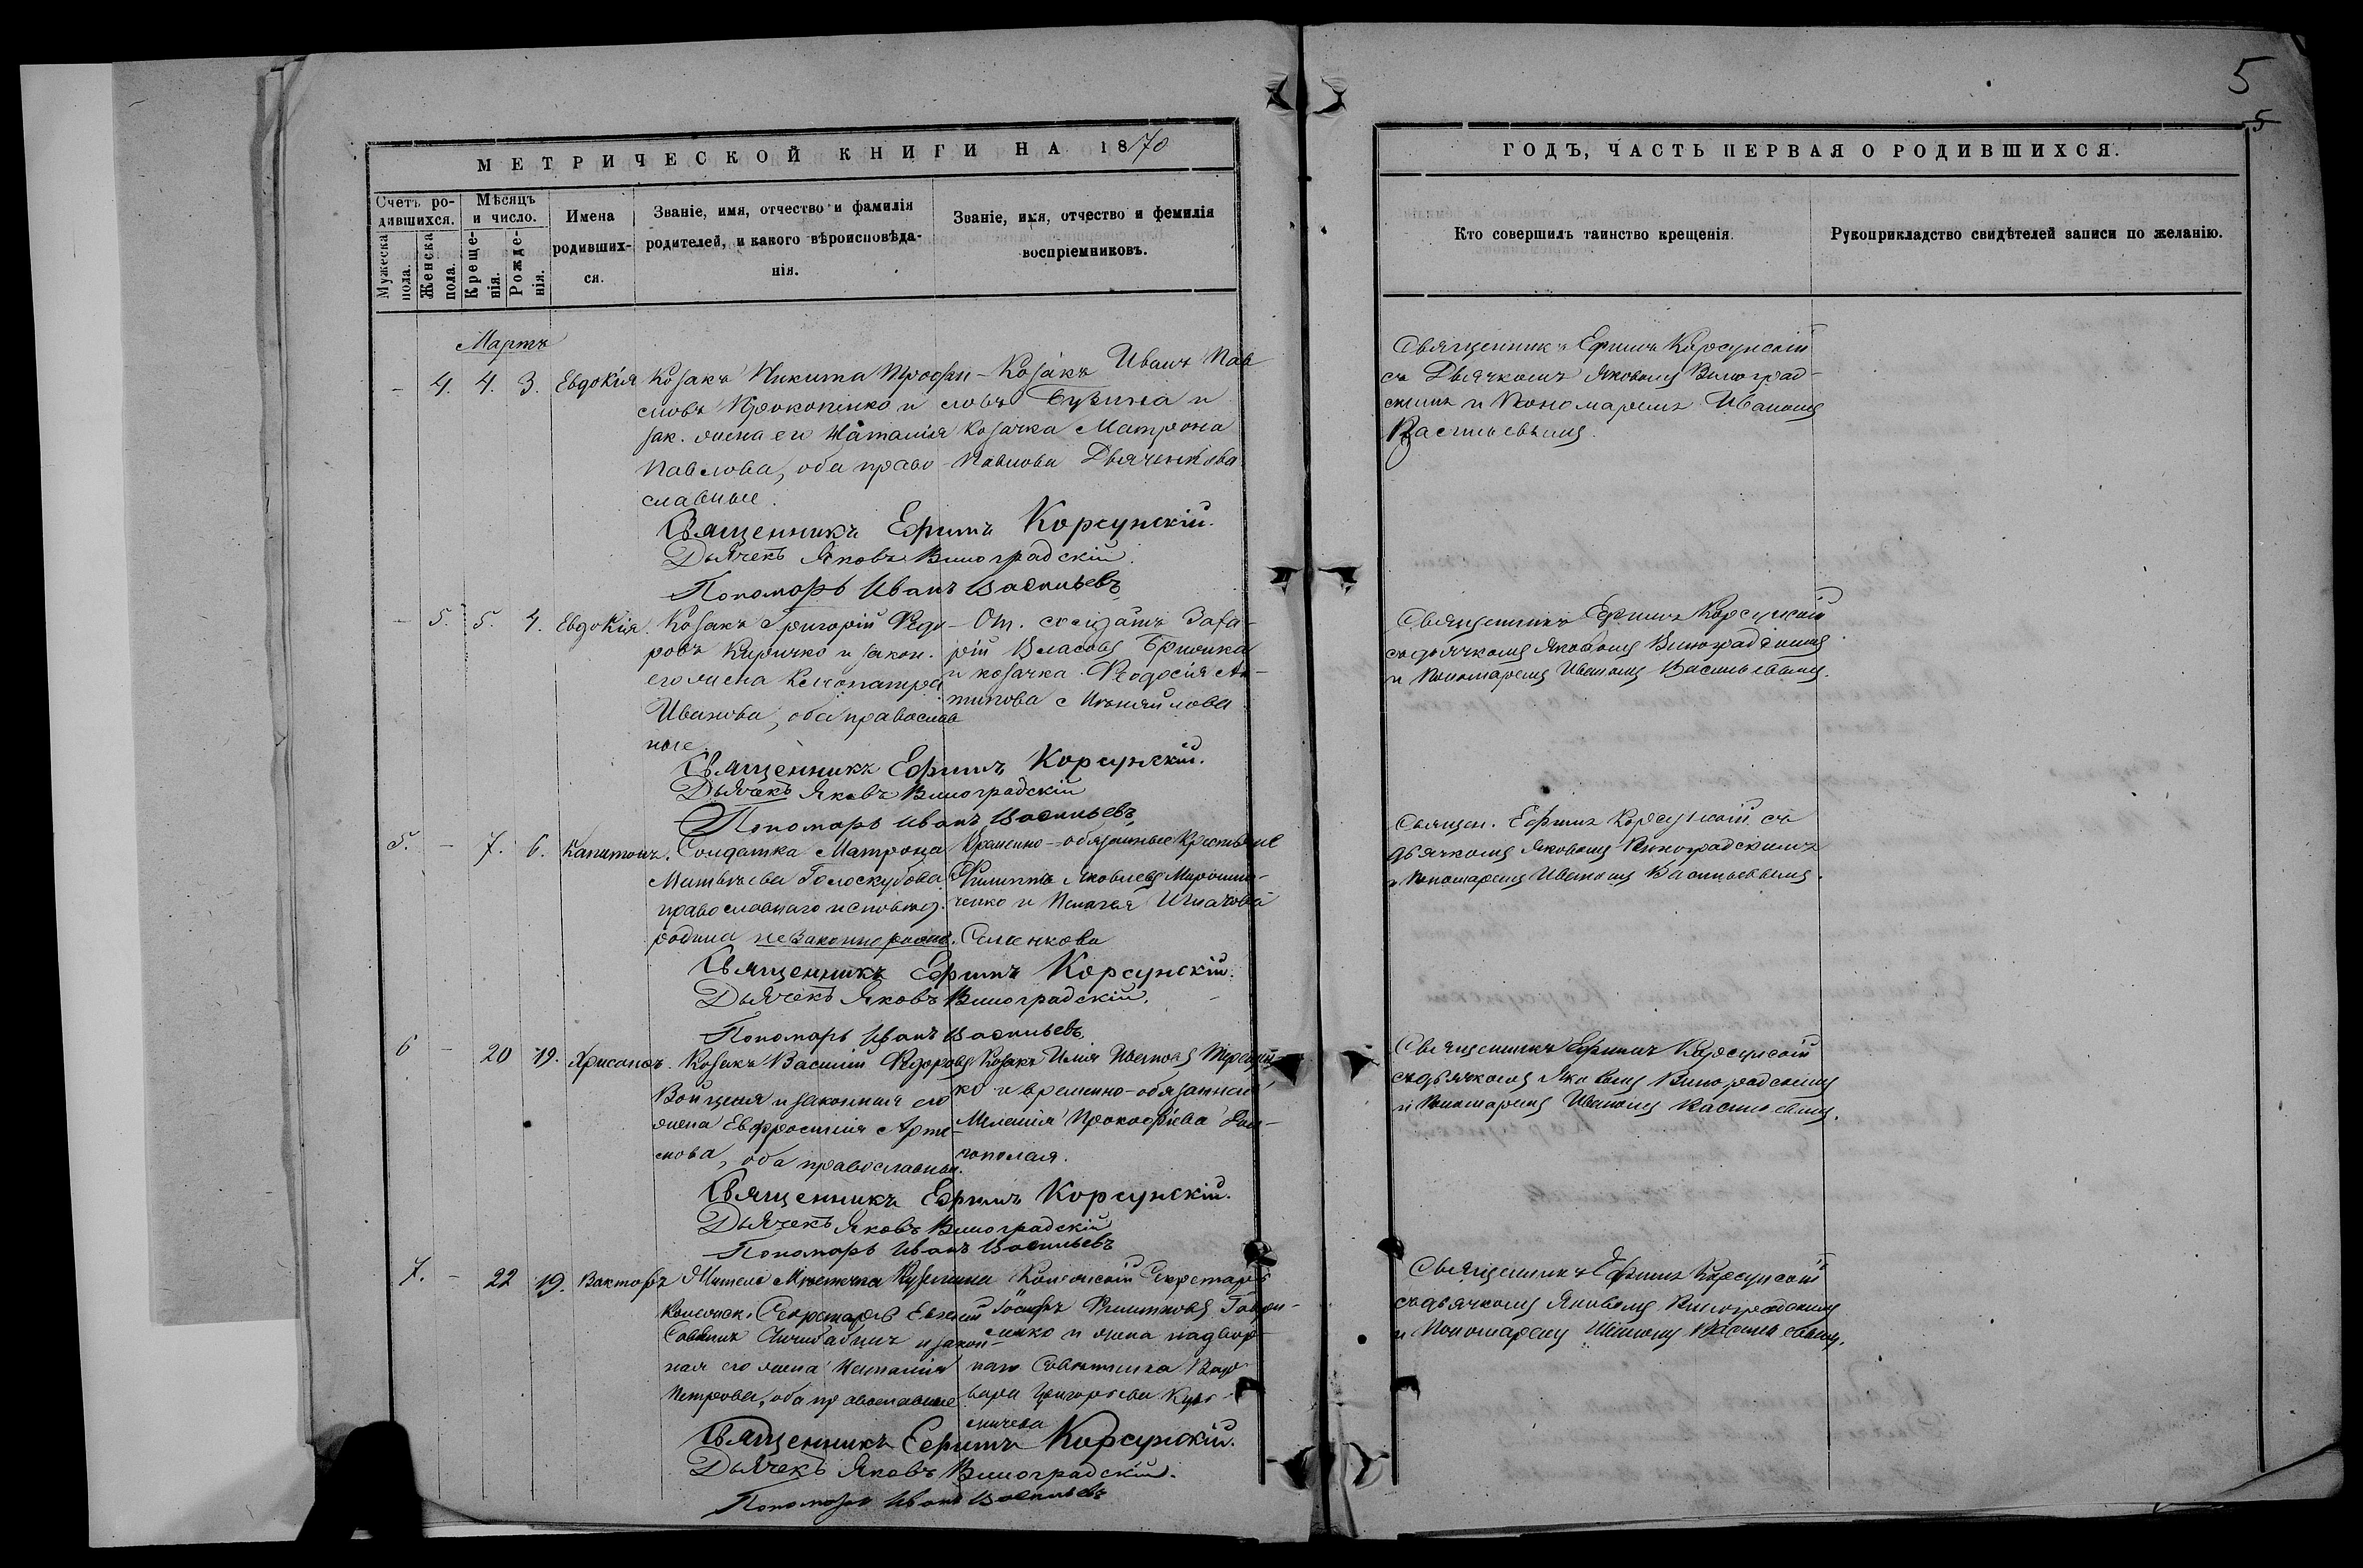 5
5
МЕТРИЧЕСКОЙ КНИГИ НА 1870
Счетъ ро-
дившихся.
Мужеска пола.
Женска пола.
Мѣсяцъ
и число.
Крещенія.
Рожденія.
Имена
родивших-
ся.
Званіе, имя, отчество и фамилія
родителей, и какого вѣроисповѣда-
нія.
Званіе, имя, отчество и фемилія
воспріемниковъ.
Мартъ
- 4. 4. 3. Евдокія
Козакъ Никита Трофи-
мовъ Прокопенко и
зак. жена его Наталія
Павлова, оба право-
славные.
Козакъ Иванъ Пав
ловъ Бузина и
козачка Матрона
Павлова Дьяченкова
Священникъ Ефимъ Корсунскій.
Дьячекъ Яковъ Виноградскій.
Пономарь Иванъ Васильевъ
- 5. 5. 4. Евдокія.
Козакъ Григорій Федо-
ровъ Киричко и закон.
его жена Клеопатра
Иванова, оба православ
ные.
От. солдатъ Заха-
рій Власовъ
и козачка Феодосія Ан-
типова
Священникъ Ефимъ Корсунскій.
Дьячекъ Яковъ Виноградскій
Пономарь Иванъ Васильевъ
5. - 7. 6. Капитонъ.
Солдатка Матрона
Матвѣева Голоскубова
православнаго исповѣд.
родила незаконнорожд.
Временно-обязанные крестьяне
Филиппъ Яковлевъ Мирошни-
ченко и Пелагея Игнатова
Священникъ Ефимъ Корсунскій.
Дьячекъ Яковъ Виноградскій.
Пономарь Иванъ Васильевъ
6 - 20 19. Хрисанфъ.
Козакъ Василій Федоровъ
Войценя и законная его
жена Евфросинія Арте-
мова, оба православные.
Козакъ Илія Ивановъ
ко и временно-обязанная
Меланія Прокофіева
Священникъ Ефимъ Корсунскій.
Дьячекъ Яковъ Виноградскій
Пономарь Иванъ Васильевъ
7. - 22 19. Викторъ
Житель Мѣстечка
Коллежск. Секретарь Евгеній
Саввинъ и закон-
ная его жена Наталія
Петрова, оба православные
Коллежскій Секретарь
Іосифъ Филипповъ Гаври-
ленко и жена надвор-
наго Совѣтника Вар-
вара Григорьева Кузь-
мичева
Священникъ Ефимъ Корсунскій.
Дьячекъ Яковъ Виноградскій.
Пономарь Иванъ Васильевъ
ГОДЪ, ЧАСТЬ ПЕРВАЯ О РОДИВШИХСЯ.
Кто совершилъ таинство крещенія.
Рукоприкладство свидѣтелей записи по желанію.
Священникъ Ефимъ Корсунскій
съ Дьячкомъ Яковомъ Виноград-
скимъ и Пономаремъ Иваномъ
Васильевымъ.
Священникъ Ефимъ Корсунскій
съ дьячкомъ Яковомъ Виноградскимъ
и Пономаремъ Иваномъ Васильевымъ.
Священ. Ефимъ Корсунскій съ
дьячкомъ Яковомъ Виноградскимъ
и Пономаремъ Иваномъ Васильевымъ.
Священникъ Ефимъ Корсунскій
съ дьячкомъ Яковомъ Виноградскимъ
и Пономаремъ Иваномъ Васильевымъ.
Священникъ Ефимъ Корсунскій
съ дьячкомъ Яковомъ Виноградскимъ
и Пономаремъ Иваномъ Васильевымъ.